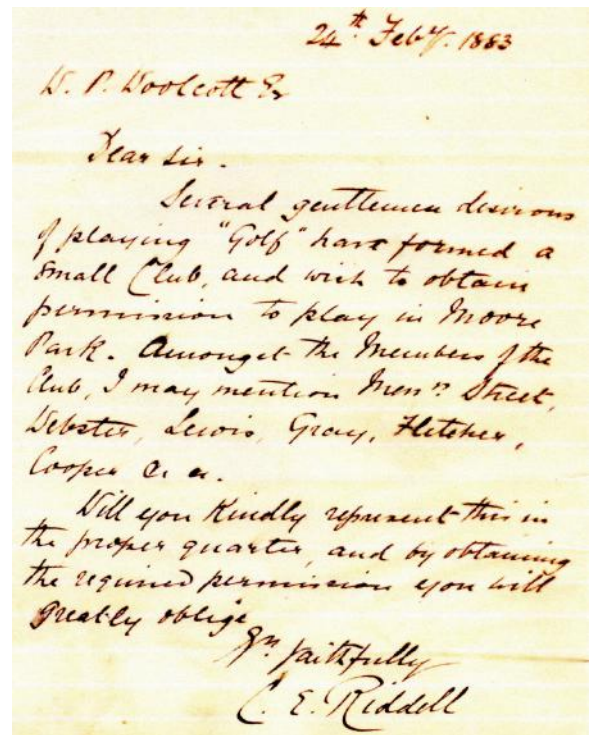 24th Feby. 1883
W. P. Woolcott Esr
Dear Sir.
Several gentlemen desirous
of playing "Golf" have formed a
Small Club, and wish to obtain
permission to play in Moore
Park. Amongst the Members of the
Club, I may mention Messrs Street,
Webster, Lewis, Gray, Fletcher,
Cooper &c &c.
Will you Kindly represent this in
the proper quarter, and by obtaining
the required permission you will
greatly oblige
Yrs faithfully
C. E. Riddell